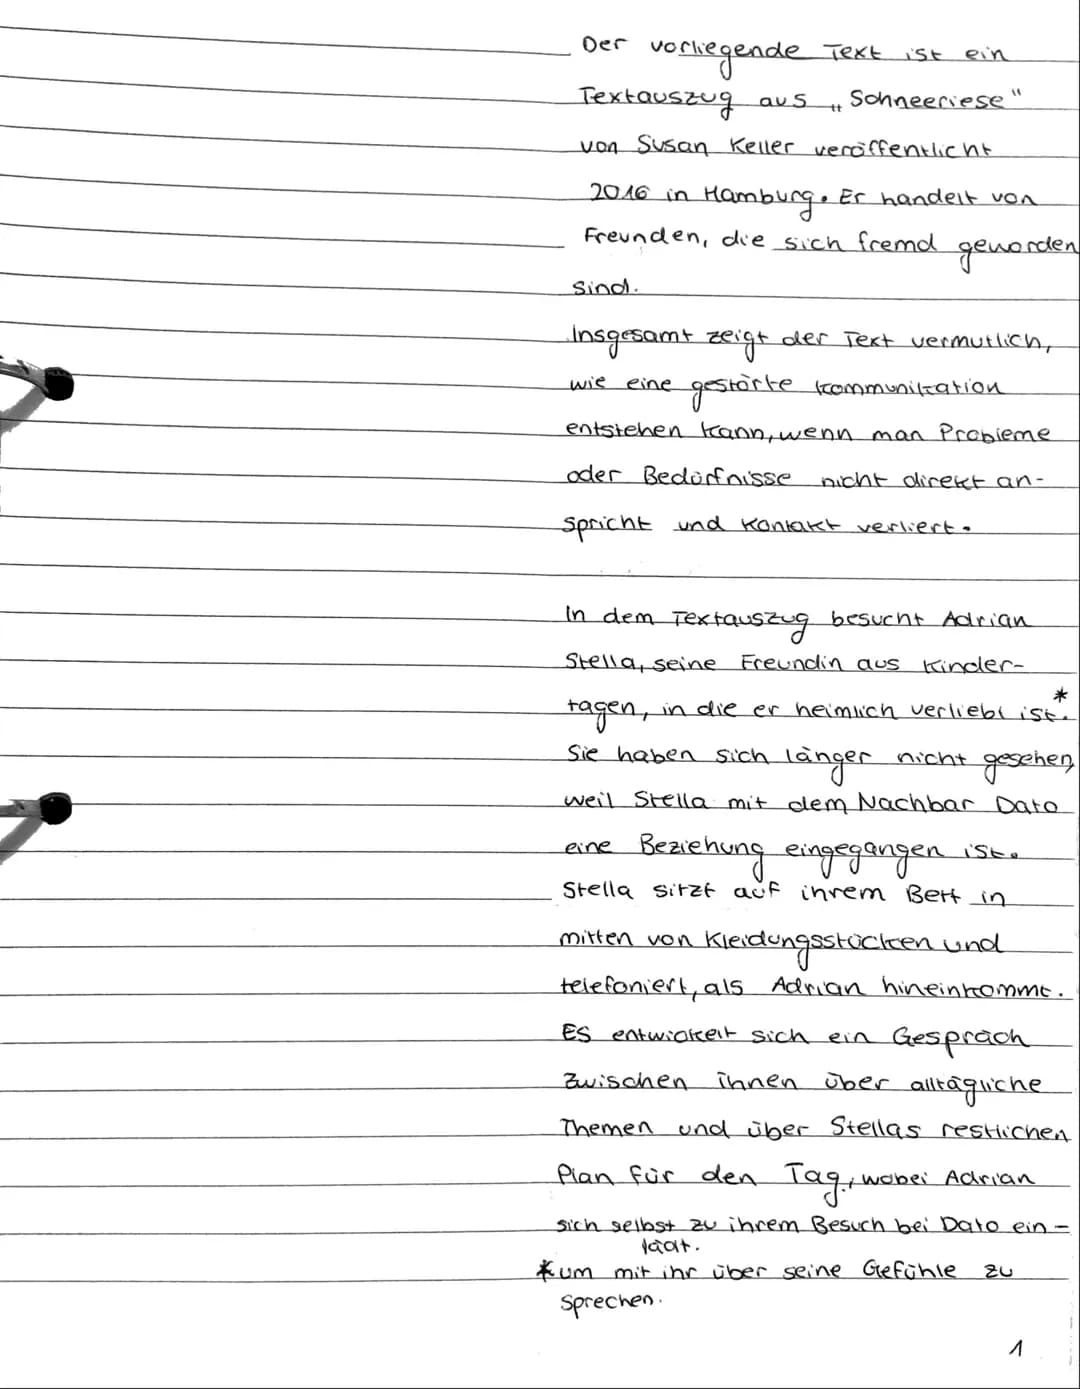 Der vorliegende Text ist ein
Textauszug aus „Schneeriese"
von Susan Keller veröffentlicht
2016 in Hamburg. Er handelt von
Freunden, die sich fremd geworden
sind.
Insgesamt zeigt der Text vermutlich,
wie eine gestörte Kommunikation
entstehen kann, wenn man Probleme
oder Bedürfnisse nicht direkt an-
spricht und Kontakt verliert.
In dem Textauszug besucht Adrian
Stella, seine Freundin aus Kinder-
tagen, in die er heimlich verliebt ist.*
Sie haben sich länger nicht gesehen,
weil Stella mit dem Nachbar Dato
eine Beziehung eingegangen ist.
Stella sitzt auf ihrem Bett in
mitten von Kleidungsstücken und
telefoniert, als Adrian hineinkommt.
Es entwickelt sich ein Gespräch
zwischen ihnen über alltägliche
Themen und über Stellas restlichen
Plan für den Tag, wobei Adrian
sich selbst zu ihrem Besuch bei Dato ein-
lädt.
*um mit ihr über seine Gefühle zu
sprechen.
1